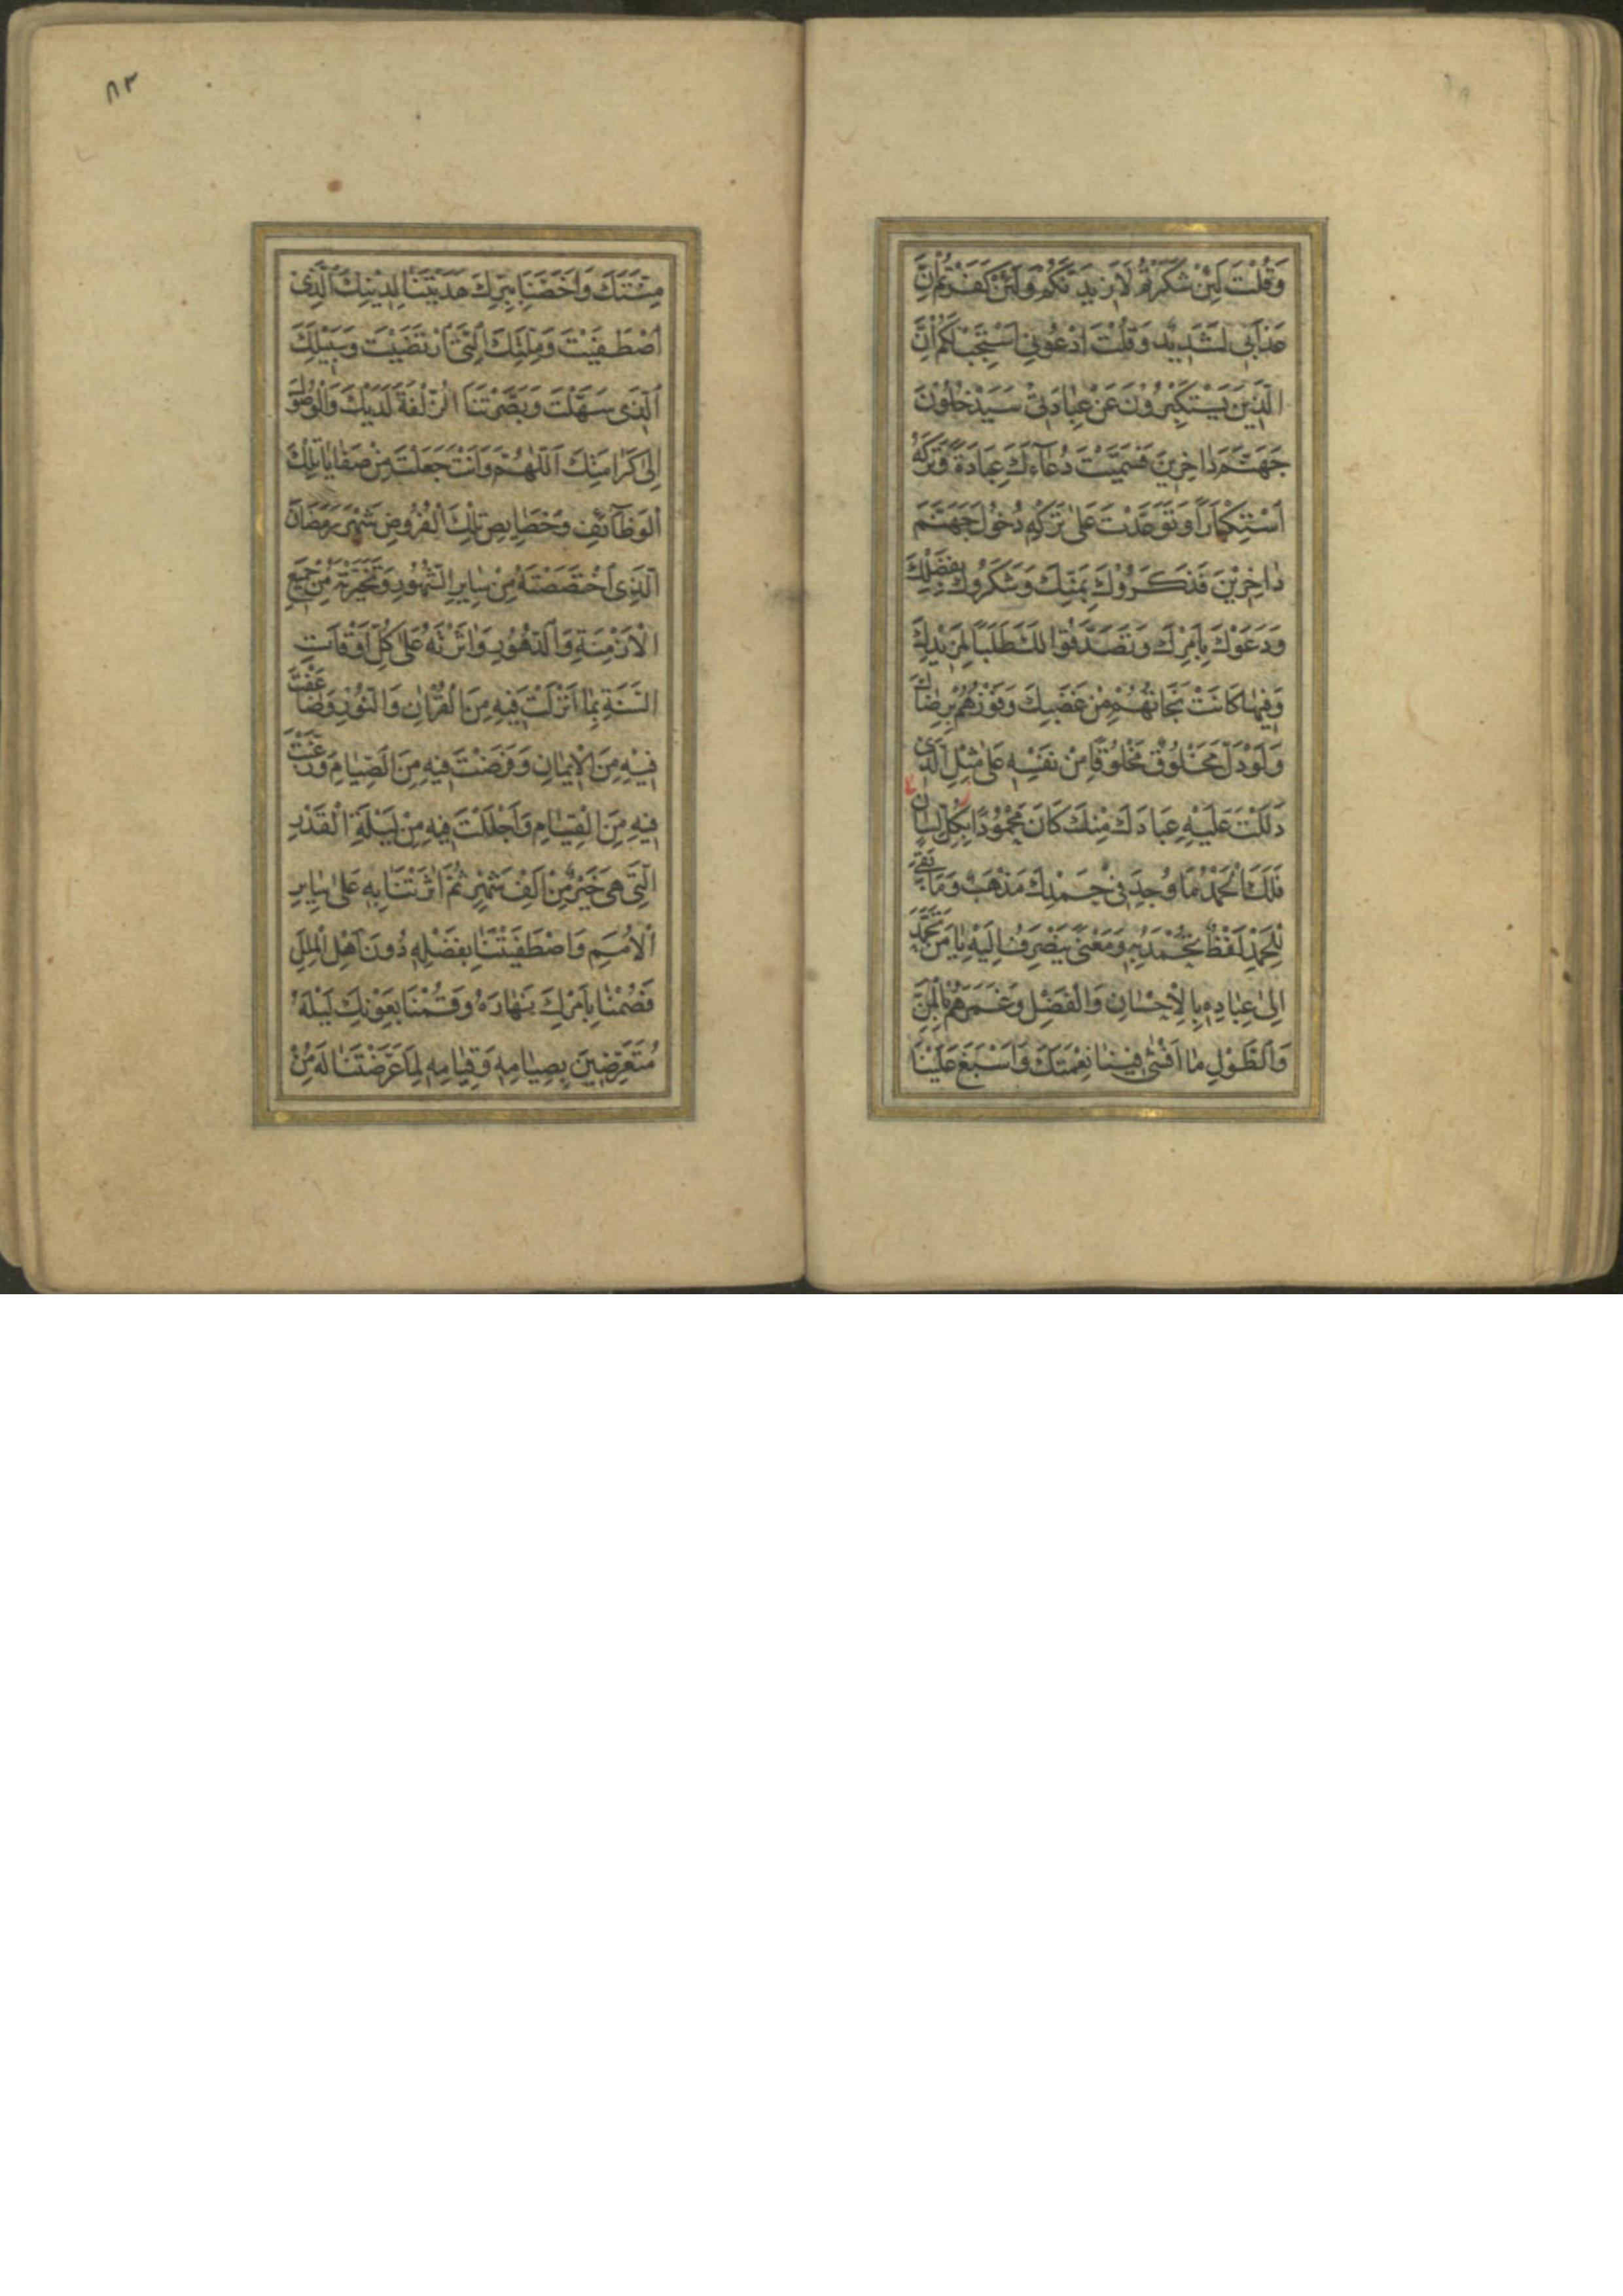 وَقُلْتَ لَئِنْ شَكَرْتُمْ لَاَزِيدَنَّكُمْ وَلَئِنْ كَفَرْتُمْ اِنَّ
عَذَابِى لَشَدِيدٌ وَقُلْتَ ادْعُونِى اَسْتَجِبْ لَكُمْ اِنَّ
الَّذِينَ يَسْتَكْبِرُونَ عَنْ عِبَادَتِى سَيَدْخُلُونَ
جَهَنَّمَ دَاخِرِينَ فَسَمَّيْتَ دُعَاءَكَ عِبَادَةً وَتَرْكَهُ
اسْتِكْبَارًا وَتَوَعَّدْتَ عَلَى تَرْكِهِ دُخُولَ جَهَنَّمَ
دَاخِرِينَ فَذَكَرُوكَ بِمَنِّكَ وَشَكَرُوكَ بِفَضْلِكَ
وَدَعَوْكَ بِاَمْرِكَ وَتَصَدَّقُوا لَكَ طَلَبًا لِمَزِيدِكَ
وَفِيهَا كَانَتْ نَجَاتُهُمْ مِنْ غَضَبِكَ وَفَوْزُهُمْ بِرِضَاكَ
وَلَوْ دَلَّ مَخْلُوقٌ مَخْلُوقًا مِنْ نَفْسِهِ عَلَى مِثْلِ الَّذِى
دَلَلْتَ عَلَيْهِ عِبَادَكَ مِنْكَ كَانَ مَحْمُودًا بِكُلِّ لِسَانٍ
فَلَكَ الْحَمْدُ مَا وُجِدَ فِى حَمْدِكَ مَذْهَبٌ وَمَا بَقِىَ
لِلْحَمْدِ لَفْظٌ تُحْمَدُ بِهِ وَمَعْنًى يَنْصَرِفُ اِلَيْهِ يَا مَنْ تَحَمَّدَ
اِلَى عِبَادِهِ بِالْاِحْسَانِ وَالْفَضْلِ وَغَمَرَهُمْ بِالْمَنِّ
وَالطَّوْلِ مَا اَفْشَى فِينَا نِعْمَتَكَ وَاَسْبَغَ عَلَيْنَا
٨٣
مِنَّتَكَ وَاَخَصَّنَا بِبِرِّكَ هَدَيْتَنَا لِدِينِكَ الَّذِى
اصْطَفَيْتَ وَمِلَّتِكَ الَّتِى ارْتَضَيْتَ وَسَبِيلِكَ
الَّذِى سَهَّلْتَ وَبَصَّرْتَنَا الزُّلْفَةَ لَدَيْكَ وَالْوُصُولَ
اِلَى كَرَامَتِكَ اَللّٰهُمَّ وَاَنْتَ جَعَلْتَ مِنْ صَفَايَا تِلْكَ
الْوَظَائِفِ وَخَصَائِصِ تِلْكَ الْفُرُوضِ شَهْرَ رَمَضَانَ
الَّذِى اخْتَصَصْتَهُ مِنْ سَايِرِ الشُّهُورِ وَتَخَيَّرْتَهُ مِنْ جَمِيعِ
الْاَزْمِنَةِ وَالدُّهُورِ وَاٰثَرْتَهُ عَلَى كُلِّ اَوْقَاتِ
السَّنَةِ بِمَا اَنْزَلْتَ فِيهِ مِنَ الْقُرْاٰنِ وَالنُّورِ وَضَاعَفْتَ
فِيهِ مِنَ الْاِيمَانِ وَفَرَضْتَ فِيهِ مِنَ الصِّيَامِ وَرَغَّبْتَ
فِيهِ مِنَ الْقِيَامِ وَاَجْلَلْتَ فِيهِ مِنْ لَيْلَةِ الْقَدْرِ
الَّتِى هِىَ خَيْرٌ مِنْ اَلْفِ شَهْرٍ ثُمَّ اٰثَرْتَنَا بِهِ عَلَى سَايِرِ
الْاُمَمِ وَاصْطَفَيْتَنَا بِفَضْلِهِ دُونَ اَهْلِ الْمِلَلِ
فَصُمْنَا بِاَمْرِكَ نَهَارَهُ وَقُمْنَا بِعَوْنِكَ لَيْلَهُ
مُتَعَرِّضِينَ بِصِيَامِهِ وَقِيَامِهِ لِمَا عَرَّضْتَنَا لَهُ مِنْ